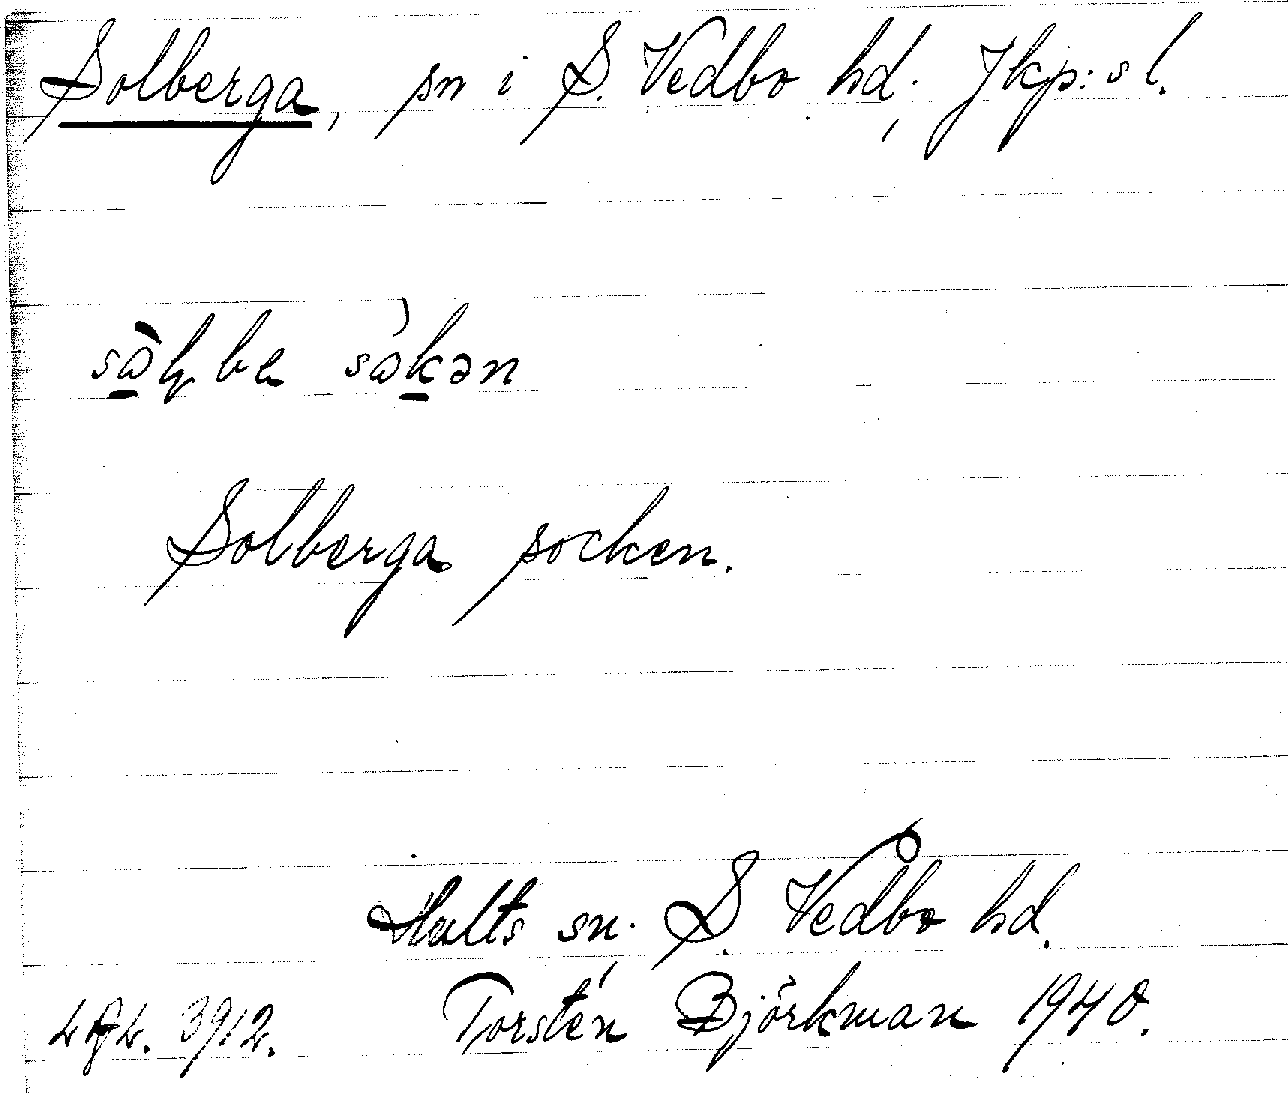 Solberga, sn i S. Vedbo hd, Jkp:s l.
Solberga socken.
Hults sn. S. Vedbo hd.
Torsten Björkman 1940.
3912.